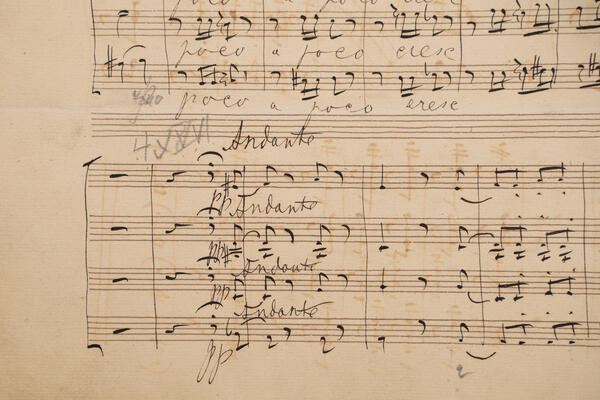 poco a poco cresc
poco a poco cresc
poco a poco cresc
4 XXVI
Andante
pp Andante
pp Andante
pp Andante
pp